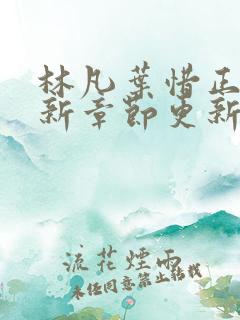 林凡葉惜正
新章節更新
流花煙雨
未經同意禁止轉載